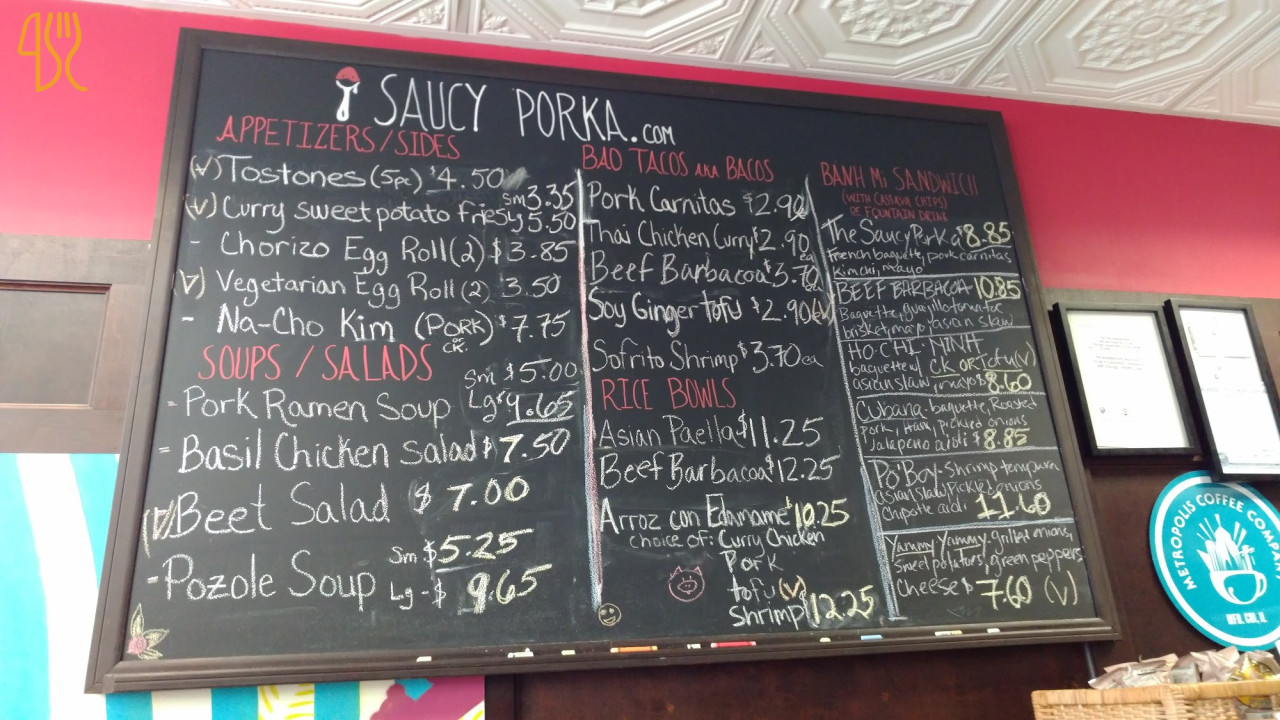 SAUCY PORKA.COM
APPETIZERS/SIDES
(V) Tostones (5pc) $4.50
(V) Curry sweet potato fries sm 3.35
5.50
- Chorizo Egg Roll (2) $3.85
(V) Vegetarian Egg Roll (2) 3.50
- Na-Cho Kim (PORK or CK.) $7.75
SOUPS / SALADS
- Pork Ramen Soup Sm $5.00
Lg 9.65
- Basil Chicken Salad $7.50
(V) Beet Salad $7.00
- Pozole Soup Sm $5.25
Lg - $9.65
BAO TACOS AKA BACOS
Pork Carnitas $2.90
Thai Chicken Curry $2.90 ea
Beef Barbacoa $3.70
Soy Ginger Tofu $2.90 (V)
Sofrito Shrimp $3.70 ea
RICE BOWLS
Asian Paella $11.25
Beef Barbacoa $12.25
Arroz con Edamame $10.25
choice of: Curry Chicken
Pork
tofu (V)
shrimp 12.25
BÁNH MI SANDWICH
(WITH CASSAVA CHIPS)
OR FOUNTAIN DRINK
The Saucy Porka $8.85
French baguette, pork carnitas
kimchi, mayo
BEEF BARBACOA 10.85
Baguette, guajillo tomatoe
brisket, mayo, asian slaw
HO-CHI-NINH
baguette w/ CK OR Tofu (V)
asian slaw, mayo $8.60
Cubana-baguette, Roasted
pork, Ham, pickled onions
Jalapeno aioli $8.85
Po'Boy-Shrimp tempura
asian slaw, pickled onions
Chipotle aioli 11.60
Yummy Yummy-grilled onions,
sweet potatoes, green peppers
Cheese $7.60 (V)
METROPOLIS COFFEE COMPANY